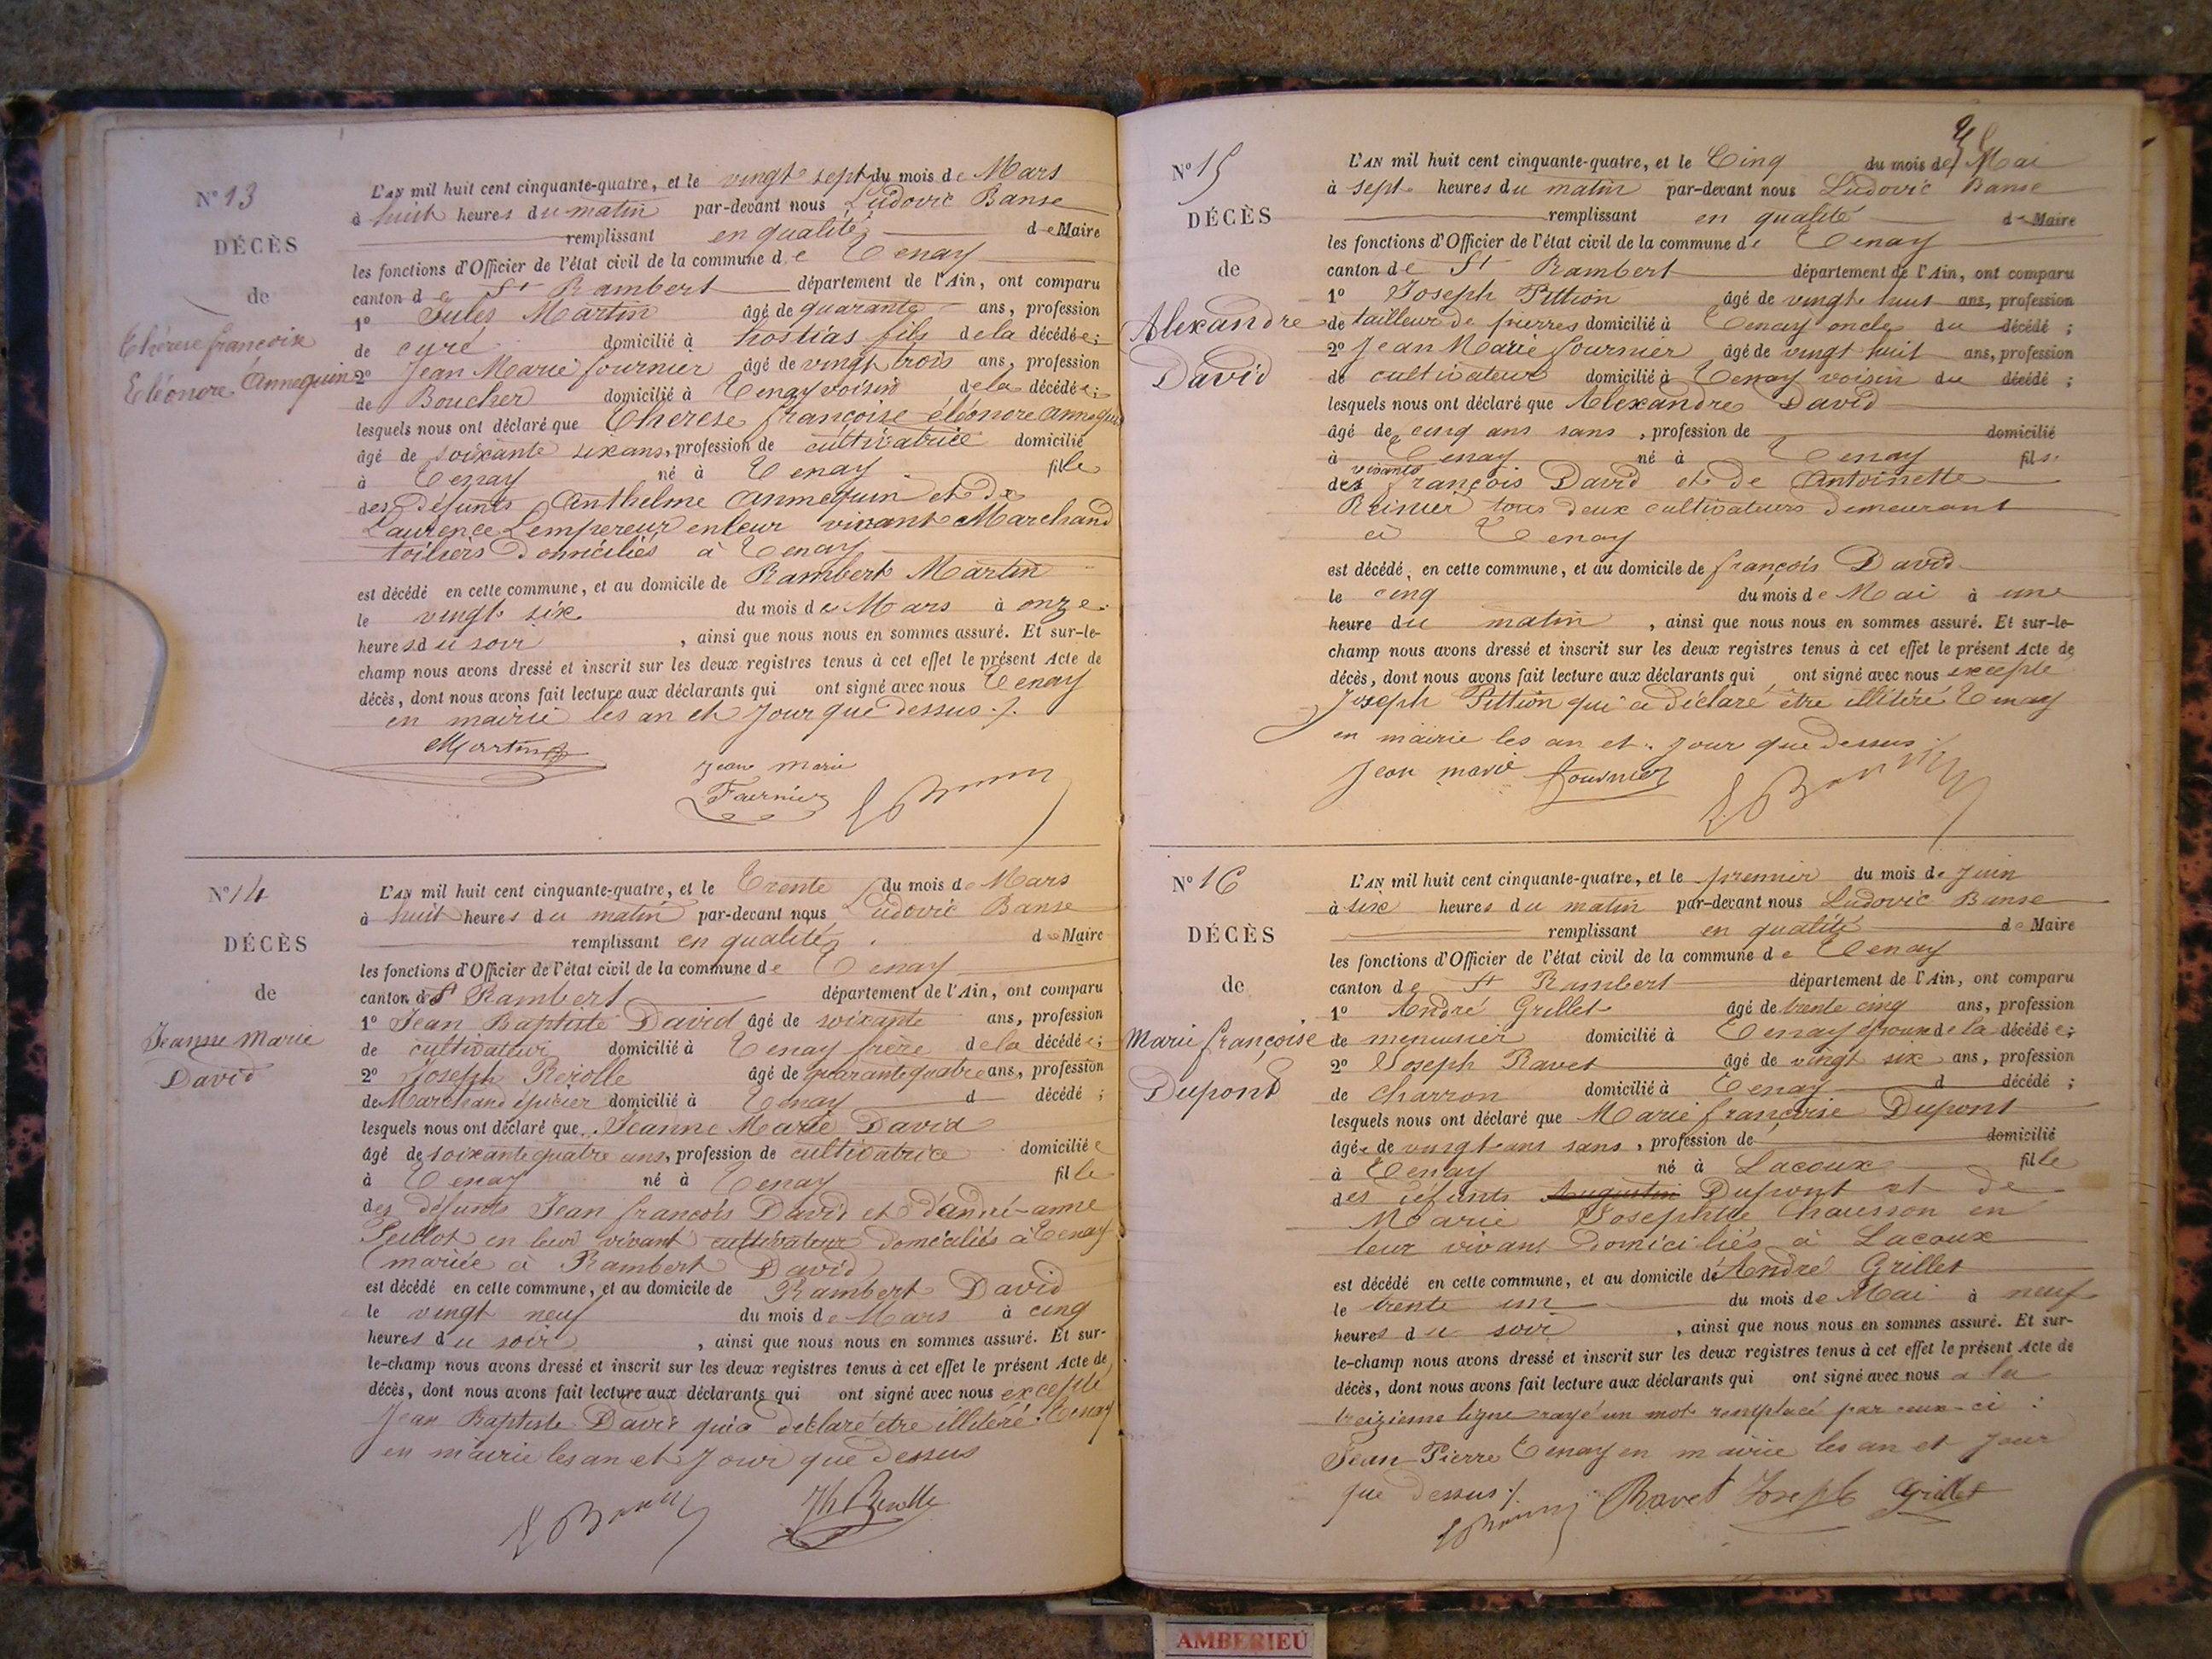 Nº 13
DÉCÈS
de
Thérèse françoise
Eléonore Annequin
L'AN mil huit cent cinquante-quatre, et le vingt sept du mois de Mars
à huit heures du matin par-devant nous Ludovic Banse
remplissant en qualité de Maire
les fonctions d'Officier de l'état civil de la commune de Tenay
canton de St Rambert département de l'Ain, ont comparu
1º Jules Martin âgé de quarante ans, profession
de curé domicilié à hostias fils de la décédée;
2º Jean Marie fournier âgé de vingt trois ans, profession
de Boucher domicilié à Tenay voisin de la décédée;
lesquels nous ont déclaré que Therese françoise éléonore annequin
âgé de soixante six ans, profession de cultivatrice domicilié
à Tenay né à Tenay fille
des défunts Anthelme Annequin et de
Laurence Lempereur en leur vivant Marchand
toiliers domiciliés à Tenay
est décédé en cette commune, et au domicile de Rambert Martin
le vingt six du mois de Mars à onze
heures du soir, ainsi que nous nous en sommes assuré. Et sur-le-
champ nous avons dressé et inscrit sur les deux registres tenus à cet effet le présent Acte de
décès, dont nous avons fait lecture aux déclarants qui ont signé avec nous Tenay
en mairie les an et Jour que dessus ./.
Martin
Jean marie
Fournier
Nº 14
DÉCÈS
de
Jeanne Marie
David
L'AN mil huit cent cinquante-quatre, et le Trente du mois de Mars
à huit heures du matin par-devant nous Ludovic Banse
remplissant en qualité de Maire
les fonctions d'Officier de l'état civil de la commune de Tenay
canton de St Rambert département de l'Ain, ont comparu
1º Jean Baptiste David âgé de soixante ans, profession
de cultivateur domicilié à Tenay frère de la décédée;
2º Joseph âgé de quarante quatre ans, profession
de Marchand épicier domicilié à Tenay d décédé;
lesquels nous ont déclaré que Jeanne Marie David
âgé de soixante quatre ans, profession de cultivatrice domiciliée
à Tenay né à Tenay fille
des défunts Jean françois David et d'andré-anne
en leur vivant cultivateur domiciliés à Tenay
mariée à Rambert David
est décédé en cette commune, et au domicile de Rambert David
le vingt neuf du mois de Mars à cinq
heures du soir, ainsi que nous nous en sommes assuré. Et sur-
le-champ nous avons dressé et inscrit sur les deux registres tenus à cet effet le présent Acte de
décès, dont nous avons fait lecture aux déclarants qui ont signé avec nous excepté
Jean Baptiste David qui a déclaré être illitéré. Tenay
en mairie les an et Jour que dessus
Nº 15
DÉCÈS
de
Alexandre
David
L'AN mil huit cent cinquante-quatre, et le Cinq du mois de Mai
à sept heures du matin par-devant nous Ludovic Banse
remplissant en qualité de Maire
les fonctions d'Officier de l'état civil de la commune de Tenay
canton de St Rambert département de l'Ain, ont comparu
1º Joseph Pittion âgé de vingt huit ans, profession
de tailleur de pierres domicilié à Tenay oncle du décédé;
2º Jean Marie fournier âgé de vingt huit ans, profession
de cultivateur domicilié à Tenay voisin du décédé;
lesquels nous ont déclaré que Alexandre David
âgé de cinq ans sans, profession de domicilié
à Tenay né à Tenay fils
des vivants françois David et de Antoinette
Reinier tous deux cultivateurs demeurant
à Tenay
est décédé, en cette commune, et au domicile de françois David
le cinq du mois de Mai à une
heure du matin, ainsi que nous nous en sommes assuré. Et sur-le-
champ nous avons dressé et inscrit sur les deux registres tenus à cet effet le présent Acte de
décès, dont nous avons fait lecture aux déclarants qui ont signé avec nous excepté
Joseph Pittion qui a déclaré être illitéré Tenay
en mairie les an et Jour que dessus
Jean marie fournier
Nº 16
DÉCÈS
de
Marie françoise
Dupont
L'AN mil huit cent cinquante-quatre, et le premier du mois de Juin
à six heures du matin par-devant nous Ludovic Banse
remplissant en qualité de Maire
les fonctions d'Officier de l'état civil de la commune de Tenay
canton de St Rambert département de l'Ain, ont comparu
1º André Grillet âgé de trente cinq ans, profession
de menuisier domicilié à Tenay époux de la décédée;
2º Joseph Ravet âgé de vingt six ans, profession
de charron domicilié à Tenay d décédé;
lesquels nous ont déclaré que Marie françoise Dupont
âgée de vingt ans sans, profession de domicilié
à Tenay né à Lacoux fille
des défunts Augustin Dupont et de
Marie Josephte Chausson en
leur vivant domiciliés à Lacoux
est décédé en cette commune, et au domicile de André Grillet
le trente un du mois de Mai à neuf
heures du soir, ainsi que nous nous en sommes assuré. Et sur-
le-champ nous avons dressé et inscrit sur les deux registres tenus à cet effet le présent Acte de
décès, dont nous avons fait lecture aux déclarants qui ont signé avec nous a la
treizieme ligne rayé un mot remplacé par ceux-ci :
Jean-Pierre Tenay en mairie les an et Jour
que dessus ./.
Ravet Joseph Grillet
AMBERIEU